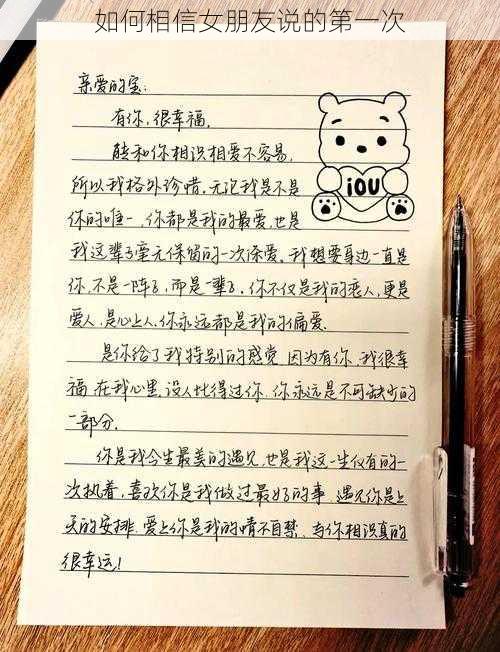 如何相信女朋友说的第一次
亲爱的宝:
有你,很幸福,
能和你相识相爱不容易,
所以我格外珍惜,无论我是不是
你的唯一,你都是我的最爱,也是
我这辈子毫无保留的一次深爱,我想要身边一直是
你,不是一阵子,而是一辈子,你不仅是我的恋人,更是
爱人,是心上人,你永远都是我的偏爱.
是你给了我特别的感觉,因为有你,我很幸
福,在我心里,没人比得过你,你永远是不可缺少的
一部分.
你是我今生最美的遇见,也是我这一生仅有的一
次执着,喜欢你是我做过最好的事,遇见你是上
天的安排,爱上你是我的情不自禁,与你相识真的
很幸运!
iOU